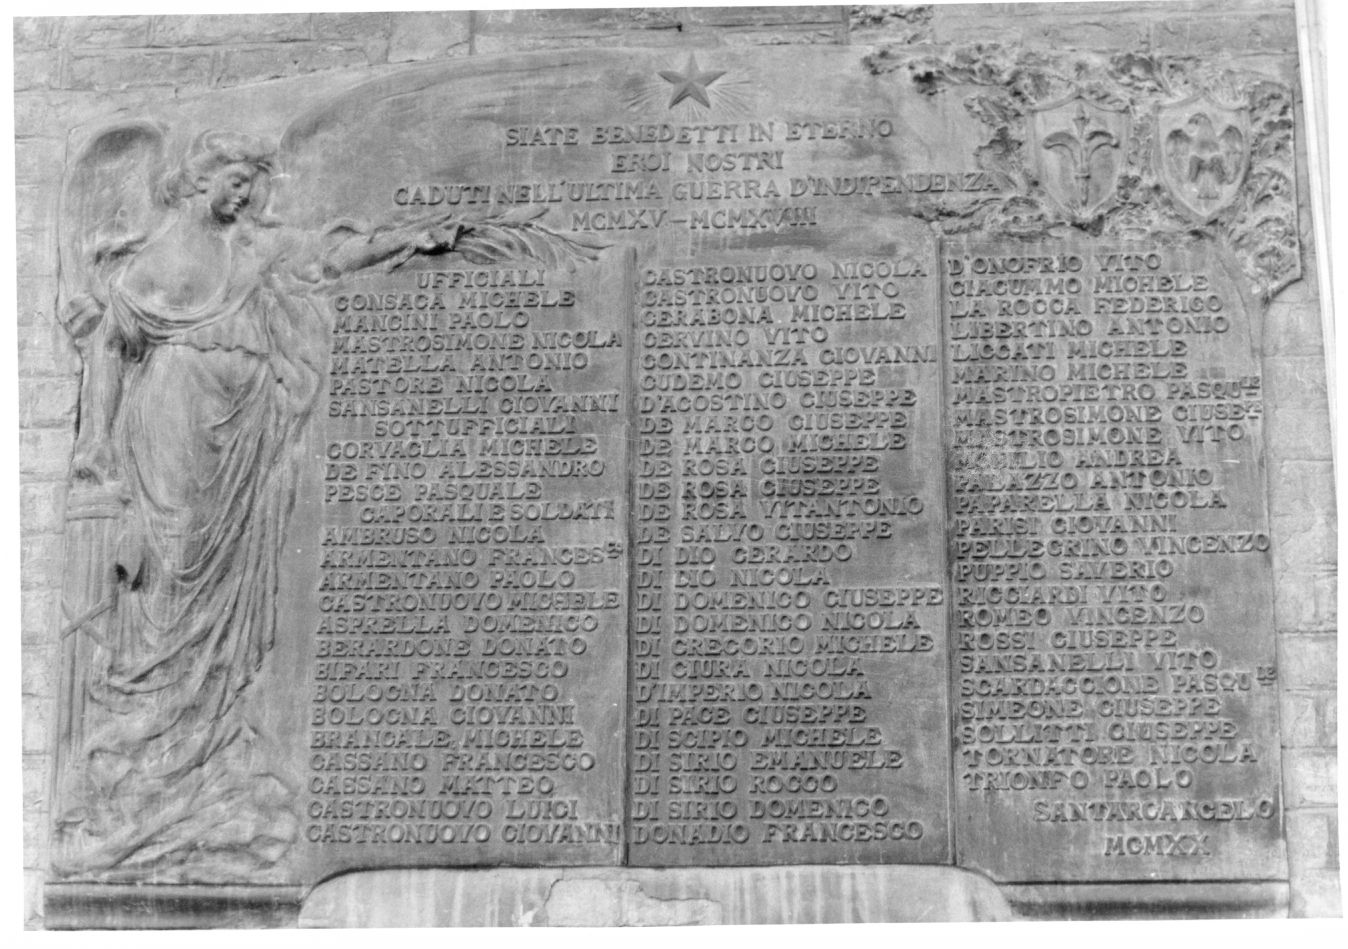 SIATE BENEDETTI IN ETERNO
EROI NOSTRI
CADUTI NELL'ULTIMA GUERRA D'INDIPENDENZA
MCMXV-MCMXVIII
UFFICIALI
CONSACA MICHELE
MANCINI PAOLO
MASTROSIMONE NICOLA
MATELLA ANTONIO
PASTORE NICOLA
SANSANELLI GIOVANNI
SOTTUFFICIALI
CORVAGLIA MICHELE
DE FINO ALESSANDRO
PESCE PASQUALE
CAPORALI E SOLDATI
AMBRUSO NICOLA
ARMENTANO FRANCES.CO
ARMENTANO PAOLO
CASTRONUOVO MICHELE
ASPRELLA DOMENICO
BERARDONE DONATO
BIFARI FRANCESCO
BOLOGNA DONATO
BOLOGNA GIOVANNI
BRANCALE MICHELE
CASSANO FRANCESCO
CASSANO MATTEO
CASTRONUOVO LUIGI
CASTRONUOVO GIOVANNI
CASTRONUOVO NICOLA
CASTRONUOVO VITO
CERABONA MICHELE
CERVINO VITO
CONTINANZA GIOVANNI
CUDEMO GIUSEPPE
D'AGOSTINO GIUSEPPE
DE MARCO GIUSEPPE
DE MARCO MICHELE
DE ROSA GIUSEPPE
DE ROSA GIUSEPPE
DE ROSA VITANTONIO
DE SALVO GIUSEPPE
DI DIO GERARDO
DI DIO NICOLA
DI DOMENICO GIUSEPPE
DI DOMENICO NICOLA
DI GREGORIO MICHELE
DI GIURA NICOLA
D'IMPERIO NICOLA
DI PACE GIUSEPPE
DI SCIPIO MICHELE
DI SIRIO EMANUELE
DI SIRIO ROCCO
DI SIRIO DOMENICO
DONADIO FRANCESCO
D'ONOFRIO VITO
GIACUMMO MICHELE
LA ROCCA FEDERIGO
LIBERTINO ANTONIO
LICCATI MICHELE
MARINO MICHELE
MASTROPIETRO PASQU.LE
MASTROSIMONE GIUSE.E
MASTROSIMONE VITO
ANDREA
PALAZZO ANTONIO
PAPARELLA NICOLA
PARISI GIOVANNI
PELLEGRINO VINCENZO
PUPPIO SAVERIO
RICCIARDI VITO
ROMEO VINCENZO
ROSSI GIUSEPPE
SANSANELLI VITO
SCARDACCIONE PASQU.LE
SIMEONE GIUSEPPE
SOLLITTI GIUSEPPE
TORNATORE NICOLA
TRIONFO PAOLO
SANTARCANGELO
MCMXX